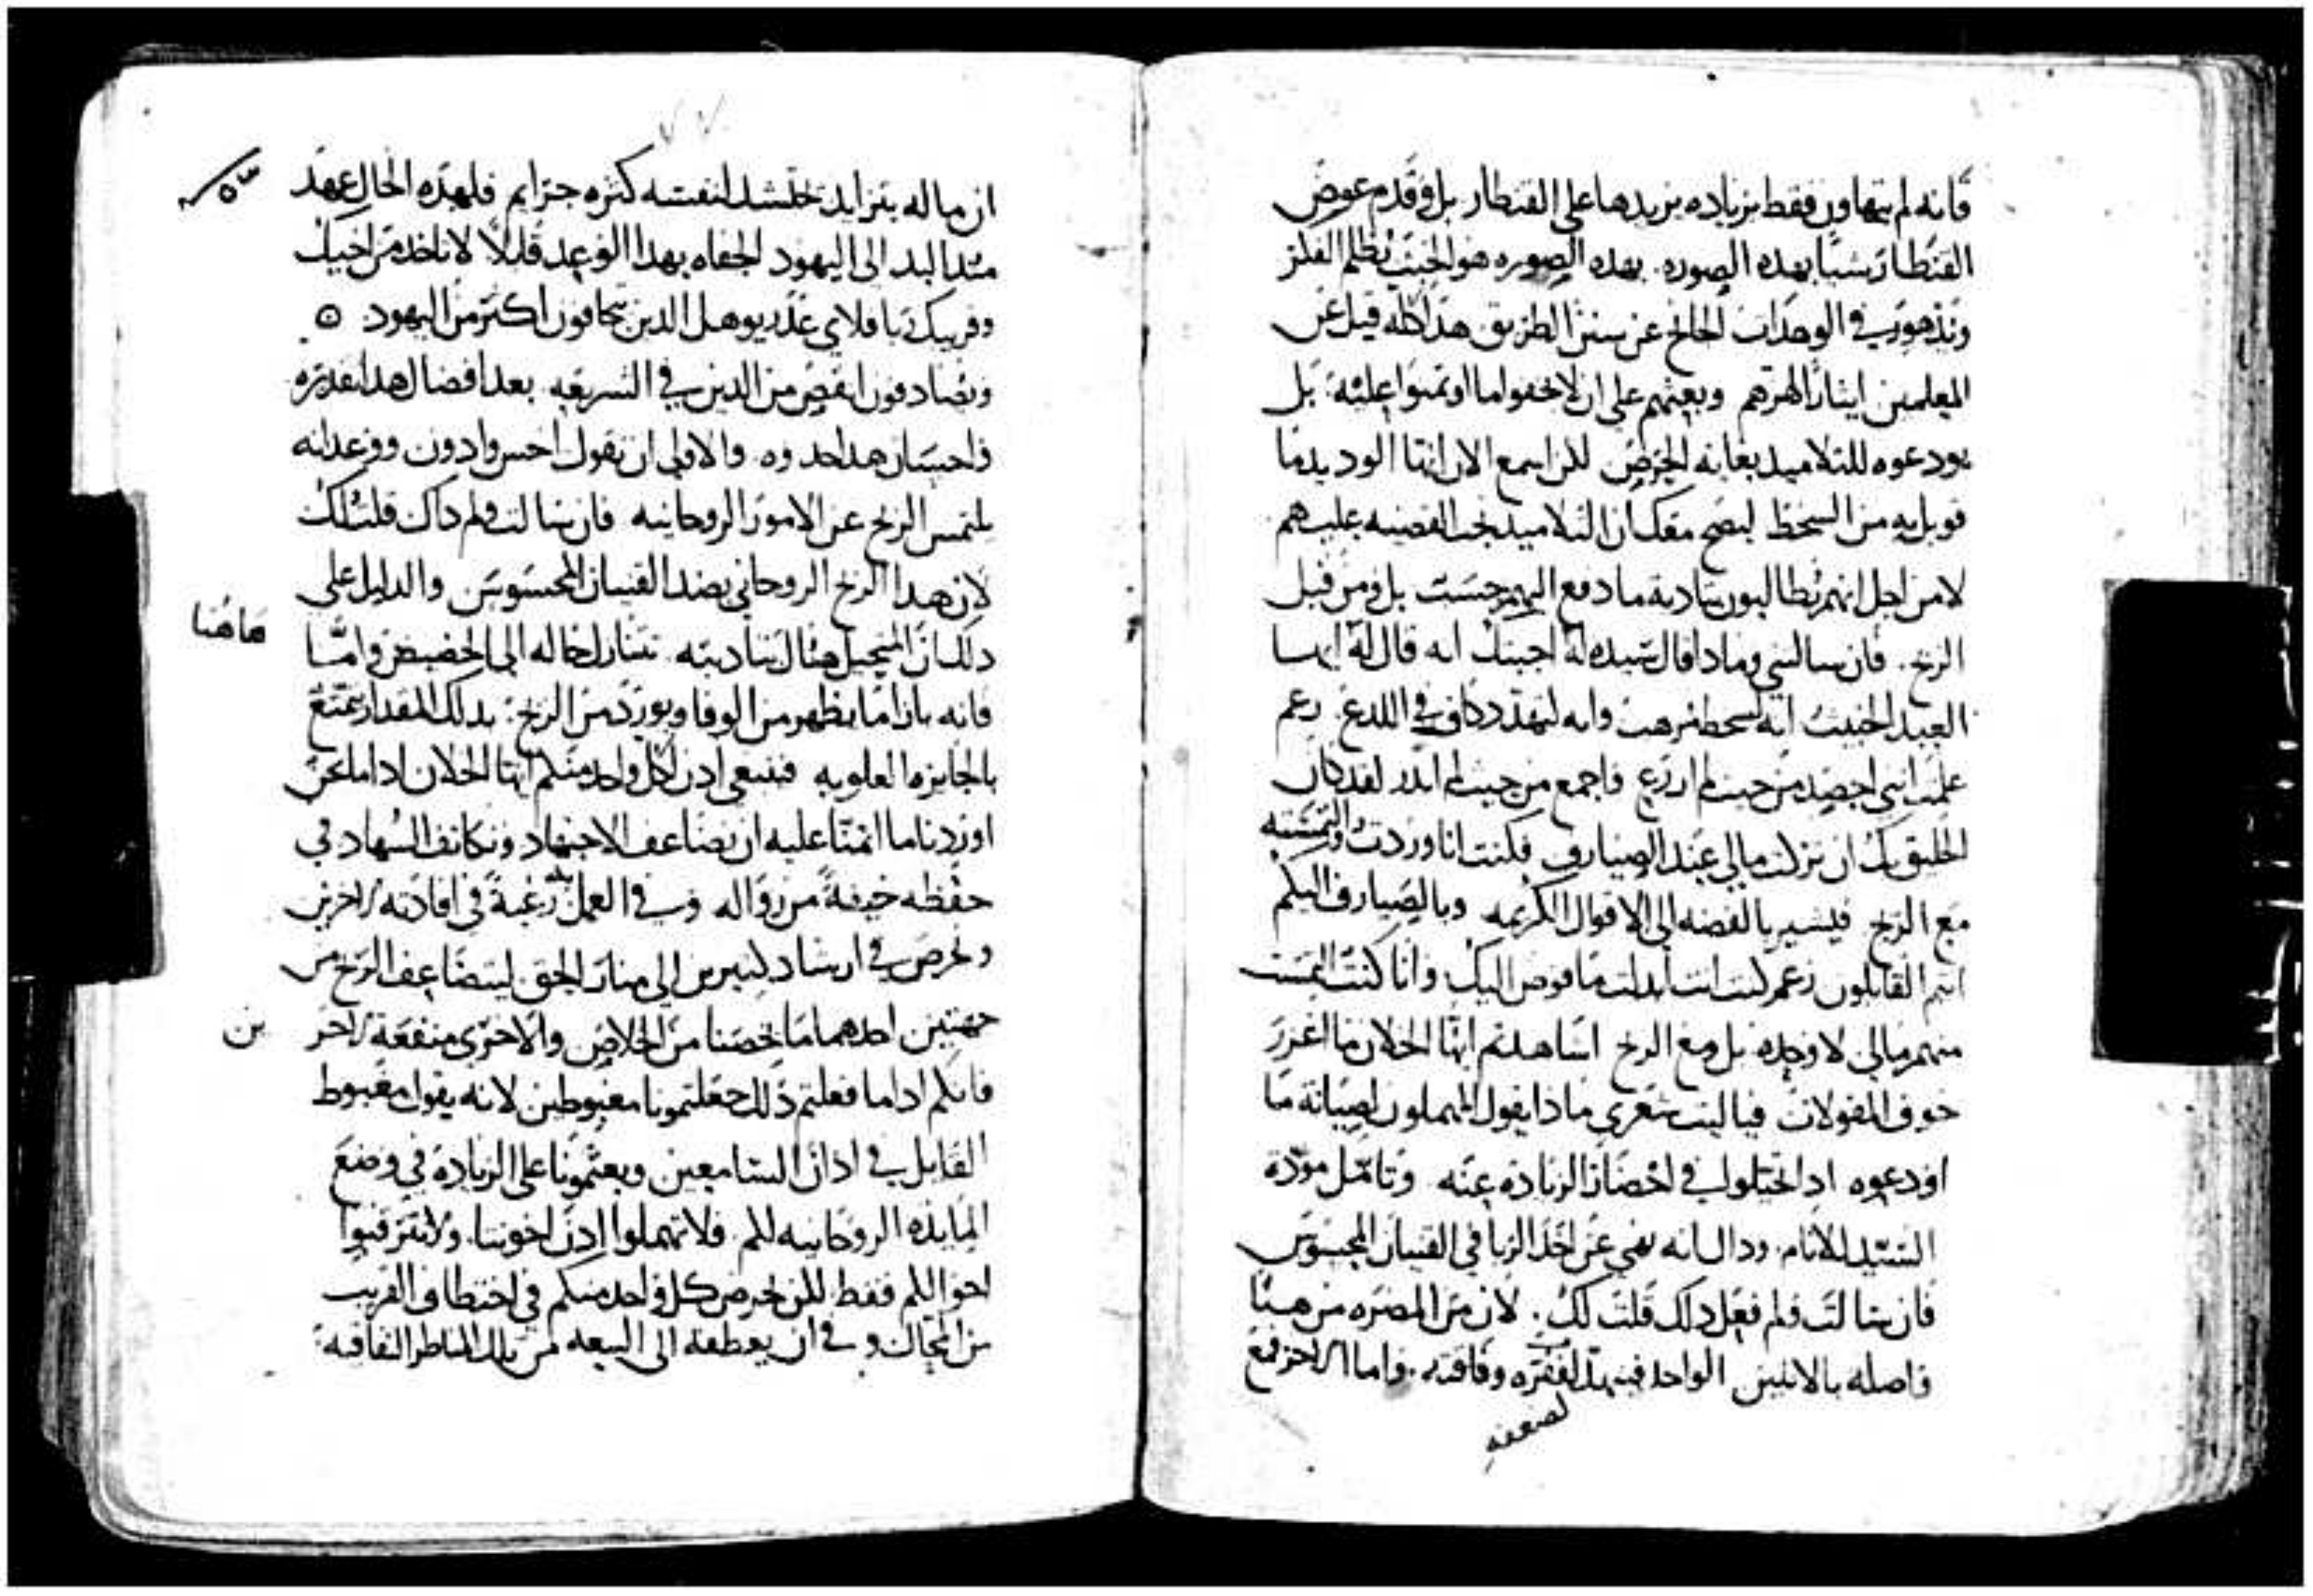 فانه لم يتهاون فقط بزياده يزيدها على القنطار بل وقدم عوض
القنطار سبًا بهده الصوره. بهده الصوره هو الخبيث يظلم الفلز
وتدهور في الوهدات الحايد عن سنن الطريق هدا كله قيل عن
المعلمين ايثارًا لهزهم وبعثهم على ان لا يخفوا ما اوتمنوا عليه. بل
يودعوه للتلاميد بغايه الحرص لكن اسمع الان ايها الوديد ما
قوبل به من السخط ليصح معك ان التلاميد تجب القضيه عليهم
لا من اجل انهم يطالبون بتاديه ما دفع اليهم حسب بل ومن قبل
الربح. فان سالتني وماذا قال سيده له اجبتك انه قال له ايها
العبد الخبيث انه لسخط مرهب وانه لتهدد كاف في اللدع. زعم
علمت انني احصد من حيث لم ازرع واجمع من حيث لم ابدر لقد كان
الخليق بك ان تترك مالي عند الصيارف فكنت انا وردت والتمسته
مع الربح فيشير بالفضه الى الاقوال الكريمه وبالصيارف اليكم
انتم القابلون زعم كنت انت ابدلت ما فوض اليك وانا كنت التمست
منهم مالي لا وحده بل ومع الربح اشاهدتم ايها الخلان ما اغزر
خوف المقولات فيا ليت شعري ماذا يقول المهملون لصيانة ما
اودعوه اد اختلوا في احضار الزيادة عنه وتامل مودة
السيد للانام. ودال انه نهى عن اخذ الربا في القنيان المحسوس
فان سالت ولم فعل دلك قلت لك. لان من المضره من هنا
واصله بالاثنين الواحد فينهد لفقره وفاقته. واما الاخر فمع
لضعفه
ان ماله يتزايد يحتشد لنفسه كثره جرايم فلهده الحال عهد
مند البد الى اليهود الجفاه بهدا الوعد قايلا لا تاخد من اخيك
وقريبك ربا فلاي عدر يوهل الدين يحافون اكثر من اليهود ⊙
ويصادفون انقص من الدين في الشريعه بعد افضال هدا قدره
واحسان هدا حدوه. والاولى ان نقول احس وادون ووعد انه
يلتمس الربح عن الامور الروحانيه فان سالت ولم داك قلت لك
لان هدا الربح الروحاني بضد القنيان المحسوس والدليل على
دلك ان المتحيل هناك بتاديته تتنازل حاله الى الحضيض واما
هاهنا
فانه بازا ما يظهر من الوفا ويورد من الربح: بدلك المقدار يتمتع
بالجايزه العلويه فينبغي ادن لكل واحد منكم ايها الخلان ادا ما نحن
اوردنا ما اتمنا عليه ان يضاعف الاجتهاد وتكاثف السهاد في
حفظه خيفةً من زواله وفي العمل به رغبةً في افادته الاخرين
ونحرص في ارشاد كثيرين الى منار الحق ليتضاعف الربح من
جهتين احدهما ما يخصنا من الخلاص والاخرى منفعة الاخر
ين
فانكم ادا ما فعلتم ذلك جعلتمونا مغبوطين لانه يقول مغبوط
القايل في ادان السامعين وبعثمونا على الزيادة في وضع
المايده الروحانيه لكم. فلا تهملوا ادن اخوتنا. ولا تترقبوا
احوالكم فقط للن ليحرص كل واحد منكم في اختطاف القريب
من المحال وفي ان يعطفه الى البيعه من تلك المناظر النفاقيه: